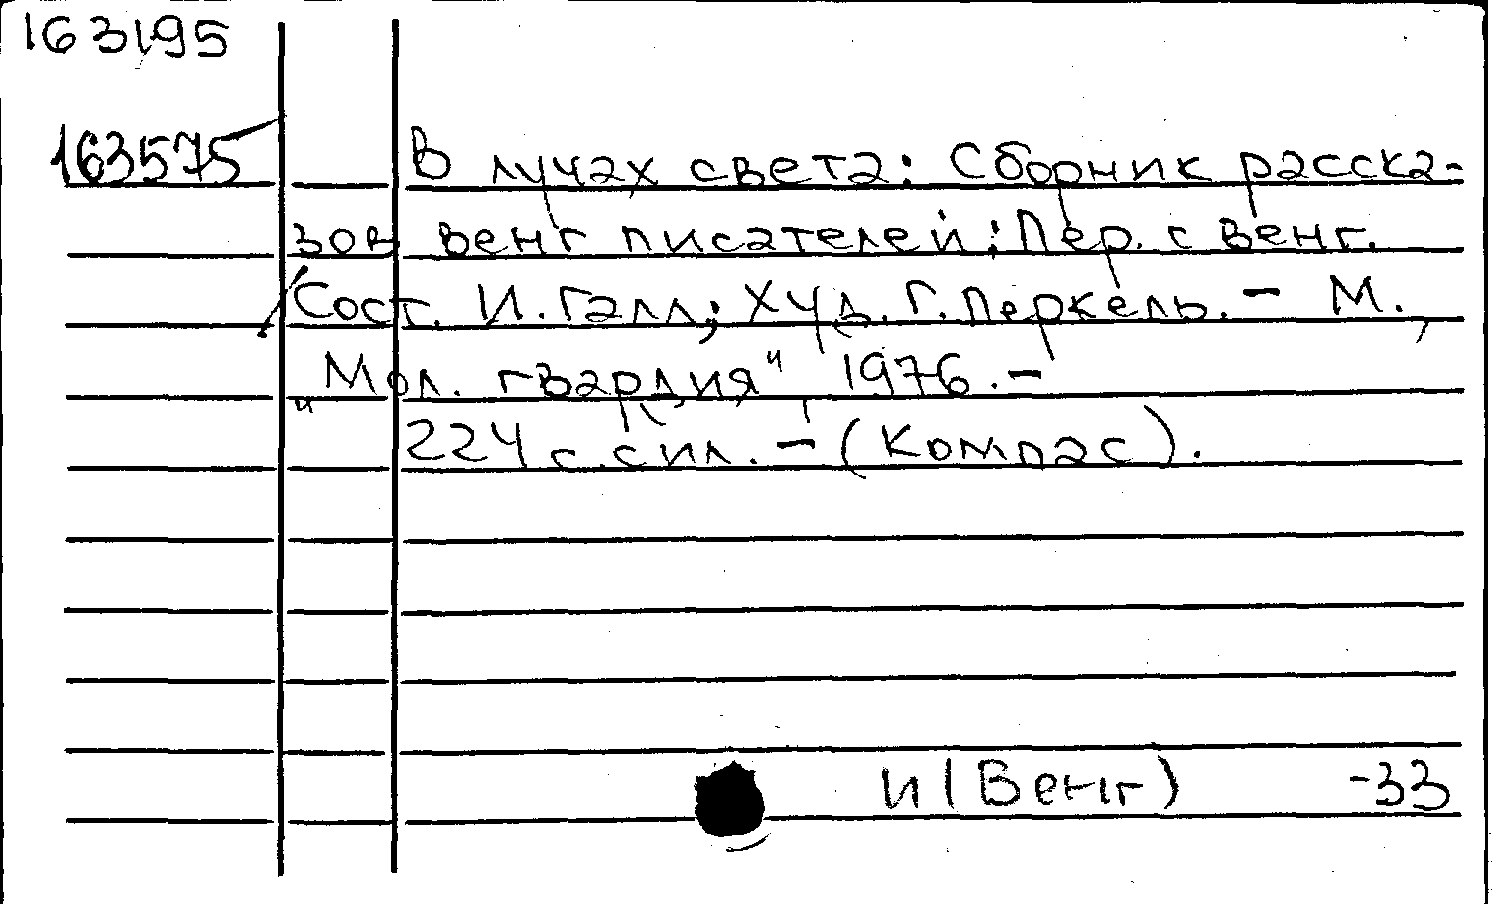 163195
163575 В лучах света: Сборник расска-
зов венг писателей; Пер. с венг.
/Сост. И. Галл; Худ. Г. Перкель. - М.,
"Мол. гвардия" 1976. -
224 с. с ил. - (Компас).
И (Венг) -33